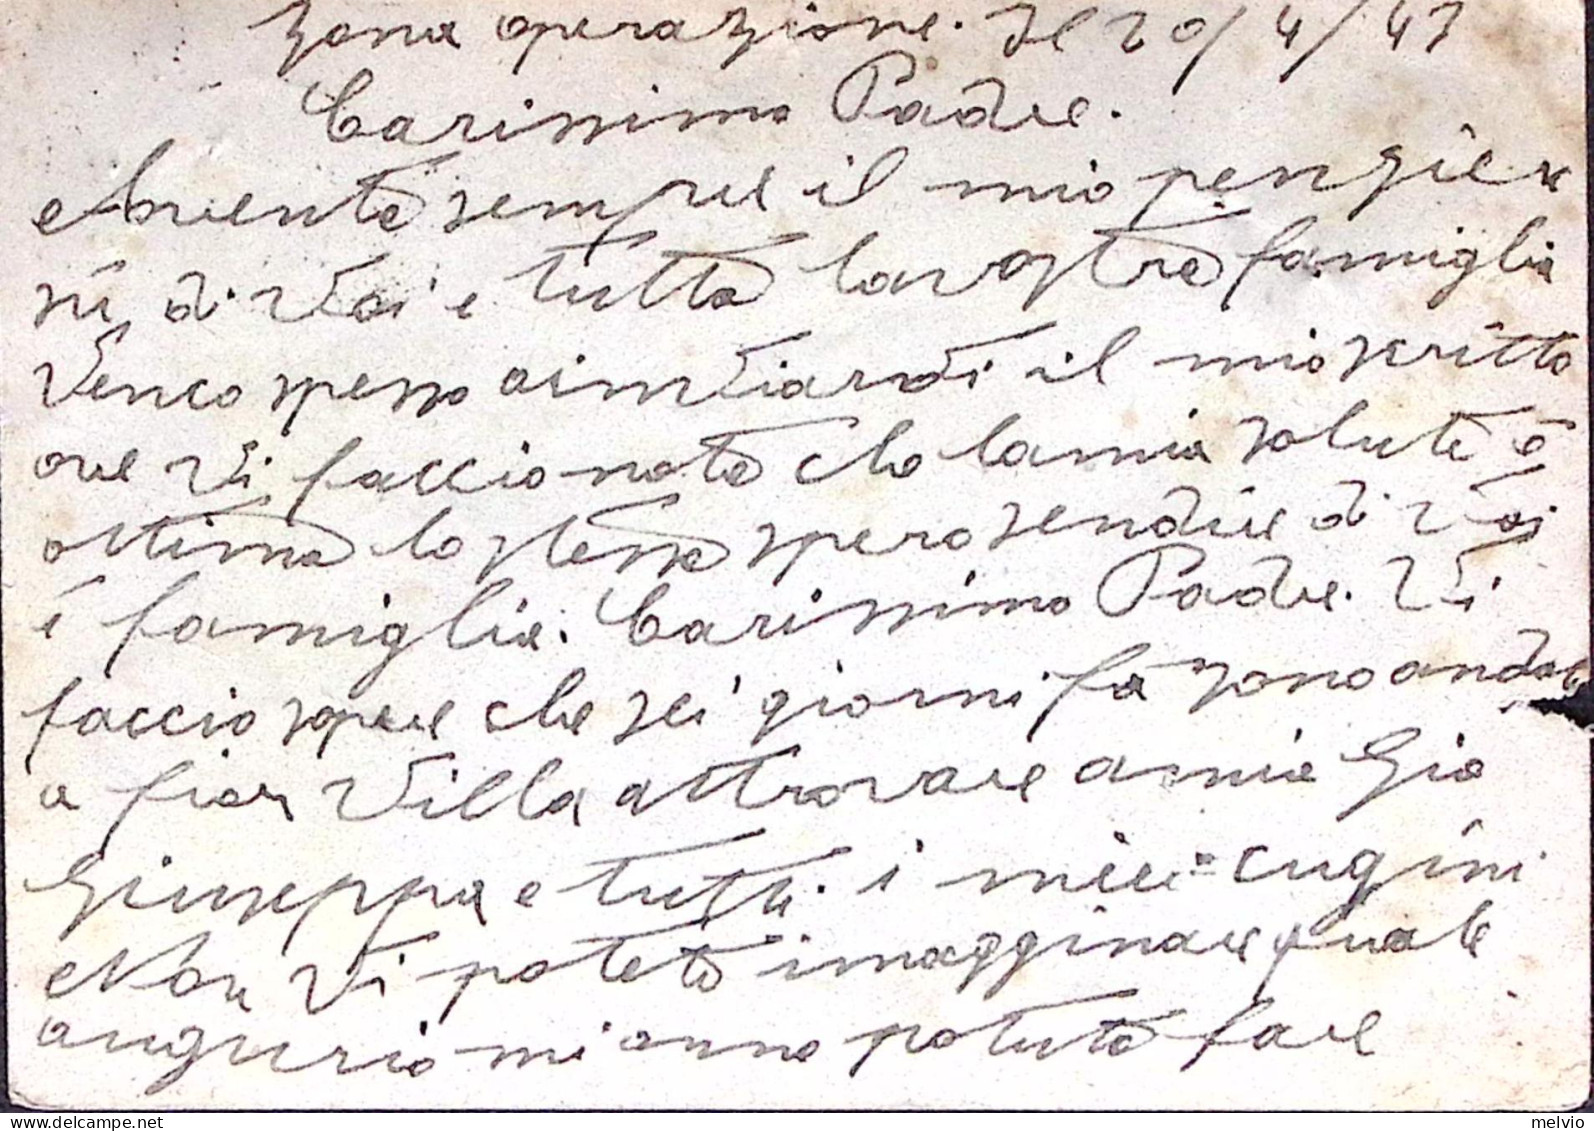 Zona operazione. Il 20/4/41
Carissimo Padre.
Avente sempre il mio penzie
ri di Voi e tutta la vostra famiglia
Venco spesso a inviarvi il mio scritto
ove Vi faccio noto che la mia salute è
ottima lo stesso spero sendire di Voi
e famiglia. Carissimo Padre. Vi
faccio sapere che sei giorni fa sono andat
a fier Villa attrovare a mia Zia
Giuseppa e tutti i miei = cugini
Non Vi potete imagginare quale
augurio mi anno potuto fare
melvio